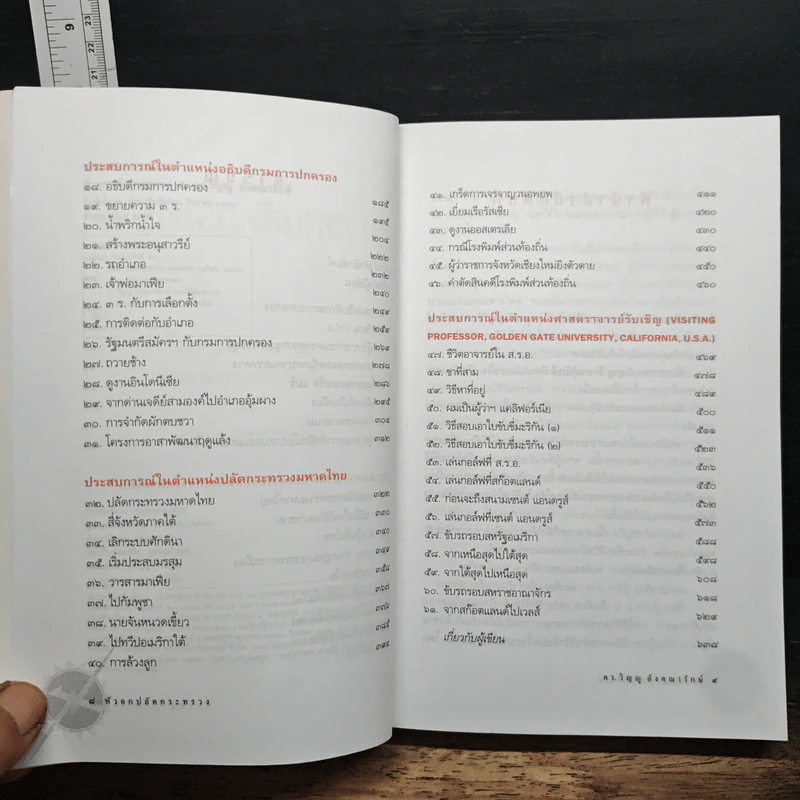 9
23
22
21
ประสบการณ์ในตำแหน่งอธิบดีกรมการปกครอง
๑๘. อธิบดีกรมการปกครอง ๑๘๕
๑๙. ขยายความ ๓ ร. ๑๙๕
๒๐. น้ำพริกน้ำใจ ๒๐๔
๒๑. สร้างพระอนุสาวรีย์ ๒๒๒
๒๒. รถอำเภอ ๒๓๒
๒๓. เจ้าพ่อมาเฟีย ๒๔๐
๒๔. ๓ ร. กับการเลือกตั้ง ๒๔๙
๒๕. การติดต่อกับอำเภอ ๒๕๙
๒๖. รัฐมนตรีสมัครฯ กับกรมการปกครอง ๒๖๙
๒๗. ถวายช้าง ๒๗๘
๒๘. ดูงานอินโดนีเซีย ๒๘๖
๒๙. จากด่านเจดีย์สามองค์ไปอำเภออุ้มผาง ๒๙๕
๓๐. การจำกัดผักตบชวา ๓๐๔
๓๑. โครงการอาสาพัฒนาฤดูแล้ง ๓๑๒
ประสบการณ์ในตำแหน่งปลัดกระทรวงมหาดไทย
๓๒. ปลัดกระทรวงมหาดไทย ๓๒๒
๓๓. สี่จังหวัดภาคใต้ ๓๓๐
๓๔. เลิกระบบศักดินา ๓๔๐
๓๕. เริ่มประสบมรสุม ๓๔๙
๓๖. วารสารมาเฟีย ๓๕๘
๓๗. ไปกัมพูชา ๓๖๗
๓๘. นายจันหนวดเขี้ยว ๓๗๖
๓๙. ไปทวีปอเมริกาใต้ ๓๘๕
๔๐. การล้วงลูก ๓๙๔
๘ หัวอกปลัดกระทรวง
๔๑. เกร็ดการเจรจาญวนอพยพ ๔๑๑
๔๒. เยี่ยมเรือรัสเซีย ๔๒๐
๔๓. ดูงานออสเตรเลีย ๔๓๐
๔๔. กรณีโรงพิมพ์ส่วนท้องถิ่น ๔๔๐
๔๕. ผู้ว่าราชการจังหวัดเชียงใหม่ยิงตัวตาย ๔๕๐
๔๖. คำตัดสินคดีโรงพิมพ์ส่วนท้องถิ่น ๔๖๐
ประสบการณ์ในตำแหน่งศาสตราจารย์รับเชิญ (VISITING
PROFESSOR, GOLDEN GATE UNIVERSITY, CALIFORNIA, U.S.A.)
๔๗. ชีวิตอาจารย์ใน ส.ร.อ. ๔๖๙
๔๘. ขาที่สาม ๔๗๘
๔๙. วิธีหาที่อยู่ ๔๘๙
๕๐. ผมเป็นผู้ว่าฯ แคลิฟอร์เนีย ๕๐๐
๕๑. วิธีสอบเอาใบขับขี่มะริกัน (๑) ๕๑๑
๕๒. วิธีสอบเอาใบขับขี่มะริกัน (๒) ๕๒๓
๕๓. เล่นกอล์ฟที่ ส.ร.อ. ๕๓๖
๕๔. เล่นกอล์ฟที่สก๊อตแลนด์ ๕๕๐
๕๕. ก่อนจะถึงสนามเซนต์ แอนดรูส์ ๕๖๒
๕๖. เล่นกอล์ฟที่เซนต์ แอนดรูส์ ๕๗๓
๕๗. ขับรถรอบสหรัฐอเมริกา ๕๘๘
๕๘. จากเหนือสุดไปใต้สุด ๕๙๘
๕๙. จากใต้สุดไปเหนือสุด ๖๐๘
๖๐. ขับรถรอบสหราชอาณาจักร ๖๑๘
๖๑. จากสก๊อตแลนด์ไปเวลส์ ๖๒๙
เกี่ยวกับผู้เขียน ๖๓๘
ดร.วิญญู อังคณารักษ์ ๙